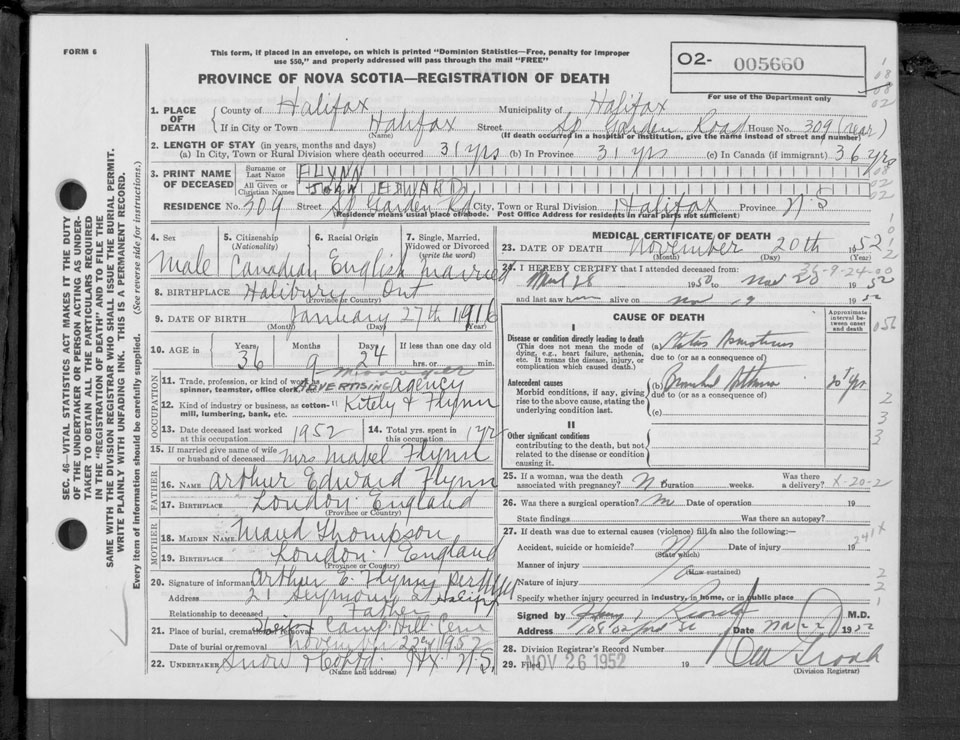 FORM 6
This form, if placed in an envelope, on which is printed "Dominion Statistics—Free, penalty for improper
use $50," and properly addressed will pass through the mail "FREE"
PROVINCE OF NOVA SCOTIA—REGISTRATION OF DEATH
O2- 005660
For use of the Department only
1. PLACE OF DEATH
County of Halifax Municipality of Halifax
If in City or Town Halifax Street Sp. Garden Road House No. 309 (rear)
(Name) (If death occurred in a hospital or institution, give the name instead of street and number)
2. LENGTH OF STAY (in years, months and days)
(a) In City, Town or Rural Division where death occurred 31 yrs (b) In Province 31 yrs (c) In Canada (if immigrant) 36 yrs
3. PRINT NAME OF DECEASED
Surname or Last Name FLYNN
All Given or Christian Names JOHN EDWARD
RESIDENCE No. 309 Street Sp Garden Rd City, Town or Rural Division Halifax Province N.S
(Residence means usual place of abode. Post Office Address for residents in rural parts not sufficient)
4. Sex Male
5. Citizenship (Nationality) Canadian
6. Racial Origin English
7. Single, Married, Widowed or Divorced (write the word) Married
8. BIRTHPLACE Halibury Ont
(Province or Country)
9. DATE OF BIRTH January 27th 1916
(Month) (Day) (Year)
10. AGE in Years 36 Months 9 Days 24 If less than one day old hrs. or min.
OCCUPATION
11. Trade, profession or kind of work as spinner, teamster, office clerk, etc. ADVERTISING agency
12. Kind of industry or business, as cotton-mill, lumbering, bank, etc. Kitely & Flynn
13. Date deceased last worked at this occupation 1952
14. Total yrs. spent in this occupation 1 yr
15. If married give name of wife or husband of deceased Mrs Mabel Flynn
FATHER
16. NAME Arthur Edward Flynn
17. BIRTHPLACE London England
(Province or Country)
MOTHER
18. MAIDEN NAME Maud Thompson
19. BIRTHPLACE London England
(Province or Country)
20. Signature of informant Arthur E. Flynn per
Address 21 Seymour St Halifax
Relationship to deceased Father
21. Place of burial, cremation or removal Halifax Camp Hill Cem
Date of burial or removal November 22nd 1952
22. UNDERTAKER Snow & Co Ltd. Hx. N.S.
(Name and address)
MEDICAL CERTIFICATE OF DEATH
23. DATE OF DEATH November 20th 1952
(Month) (Day)
36-9-24-00
24. I HEREBY CERTIFY that I attended deceased from:
28 1950 to Nov 20 1952
and last saw him alive on Nov 19 1952
CAUSE OF DEATH
Approximate interval between onset and death
I
Disease or condition directly leading to death
(This does not mean the mode of dying, e.g., heart failure, asthenia, etc. It means the disease, injury, or complication which caused death.)
(a) Status Asmaticus
due to (or as a consequence of)
Antecedent causes
Morbid conditions, if any, giving rise to the above cause, stating the underlying condition last.
(b) Bronchial Asthma 20+ yrs
due to (or as a consequence of)
(c)
II
Other significant conditions
contributing to the death, but not related to the disease or condition causing it.
25. If a woman, was the death associated with pregnancy? N Duration weeks. Was there a delivery? X-20-2
26. Was there a surgical operation? Date of operation 19
State findings Was there an autopsy?
27. If death was due to external causes (violence) fill in also the following:
Accident, suicide or homicide? Date of injury 19 241X
(State which)
Manner of injury
(How sustained)
Nature of injury
Specify whether injury occurred in industry, in home, or in public place
Signed by M.D.
Address Date Nov 1952
28. Division Registrar's Record Number
29. Filed NOV 26 1952 19
(Division Registrar)
SEC. 46—VITAL STATISTICS ACT MAKES IT THE DUTY
OF THE UNDERTAKER OR PERSON ACTING AS UNDER-
TAKER TO OBTAIN ALL THE PARTICULARS REQUIRED
IN THE "REGISTRATION OF DEATH" AND TO FILE THE
SAME WITH THE DIVISION REGISTRAR WHO SHALL ISSUE THE BURIAL PERMIT.
WRITE PLAINLY WITH UNFADING INK. THIS IS A PERMANENT RECORD.
Every item of information should be carefully supplied. (See reverse side for instructions.)